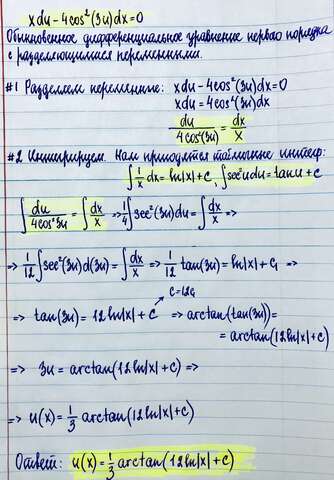 xdu - 4cos²(3u)dx = 0
Обыкновенное дифференциальное уравнение первого порядка
с разделяющимися переменными.
#1 Разделяем переменные: xdu - 4cos²(3u)dx = 0
xdu = 4cos²(3u)dx
du/4cos²(3u) = dx/x
#2 Интегрируем. Нам пригодятся табличные интегр:
∫1/x dx = ln|x| + c, ∫sec²u du = tanu + c
∫du/4cos²3u = ∫dx/x => 1/4∫sec²(3u)du = ∫dx/x =>
=> 1/12∫sec²(3u)d(3u) = ∫dx/x => 1/12 tan(3u) = ln|x| + c₁ =>
c = 12c₁
=> tan(3u) = 12ln|x| + c => arctan(tan(3u)) =
= arctan(12ln|x| + c)
=> 3u = arctan(12ln|x| + c) =>
=> u(x) = 1/3 arctan(12ln|x| + c)
Ответ: u(x) = 1/3 arctan(12ln|x| + c)